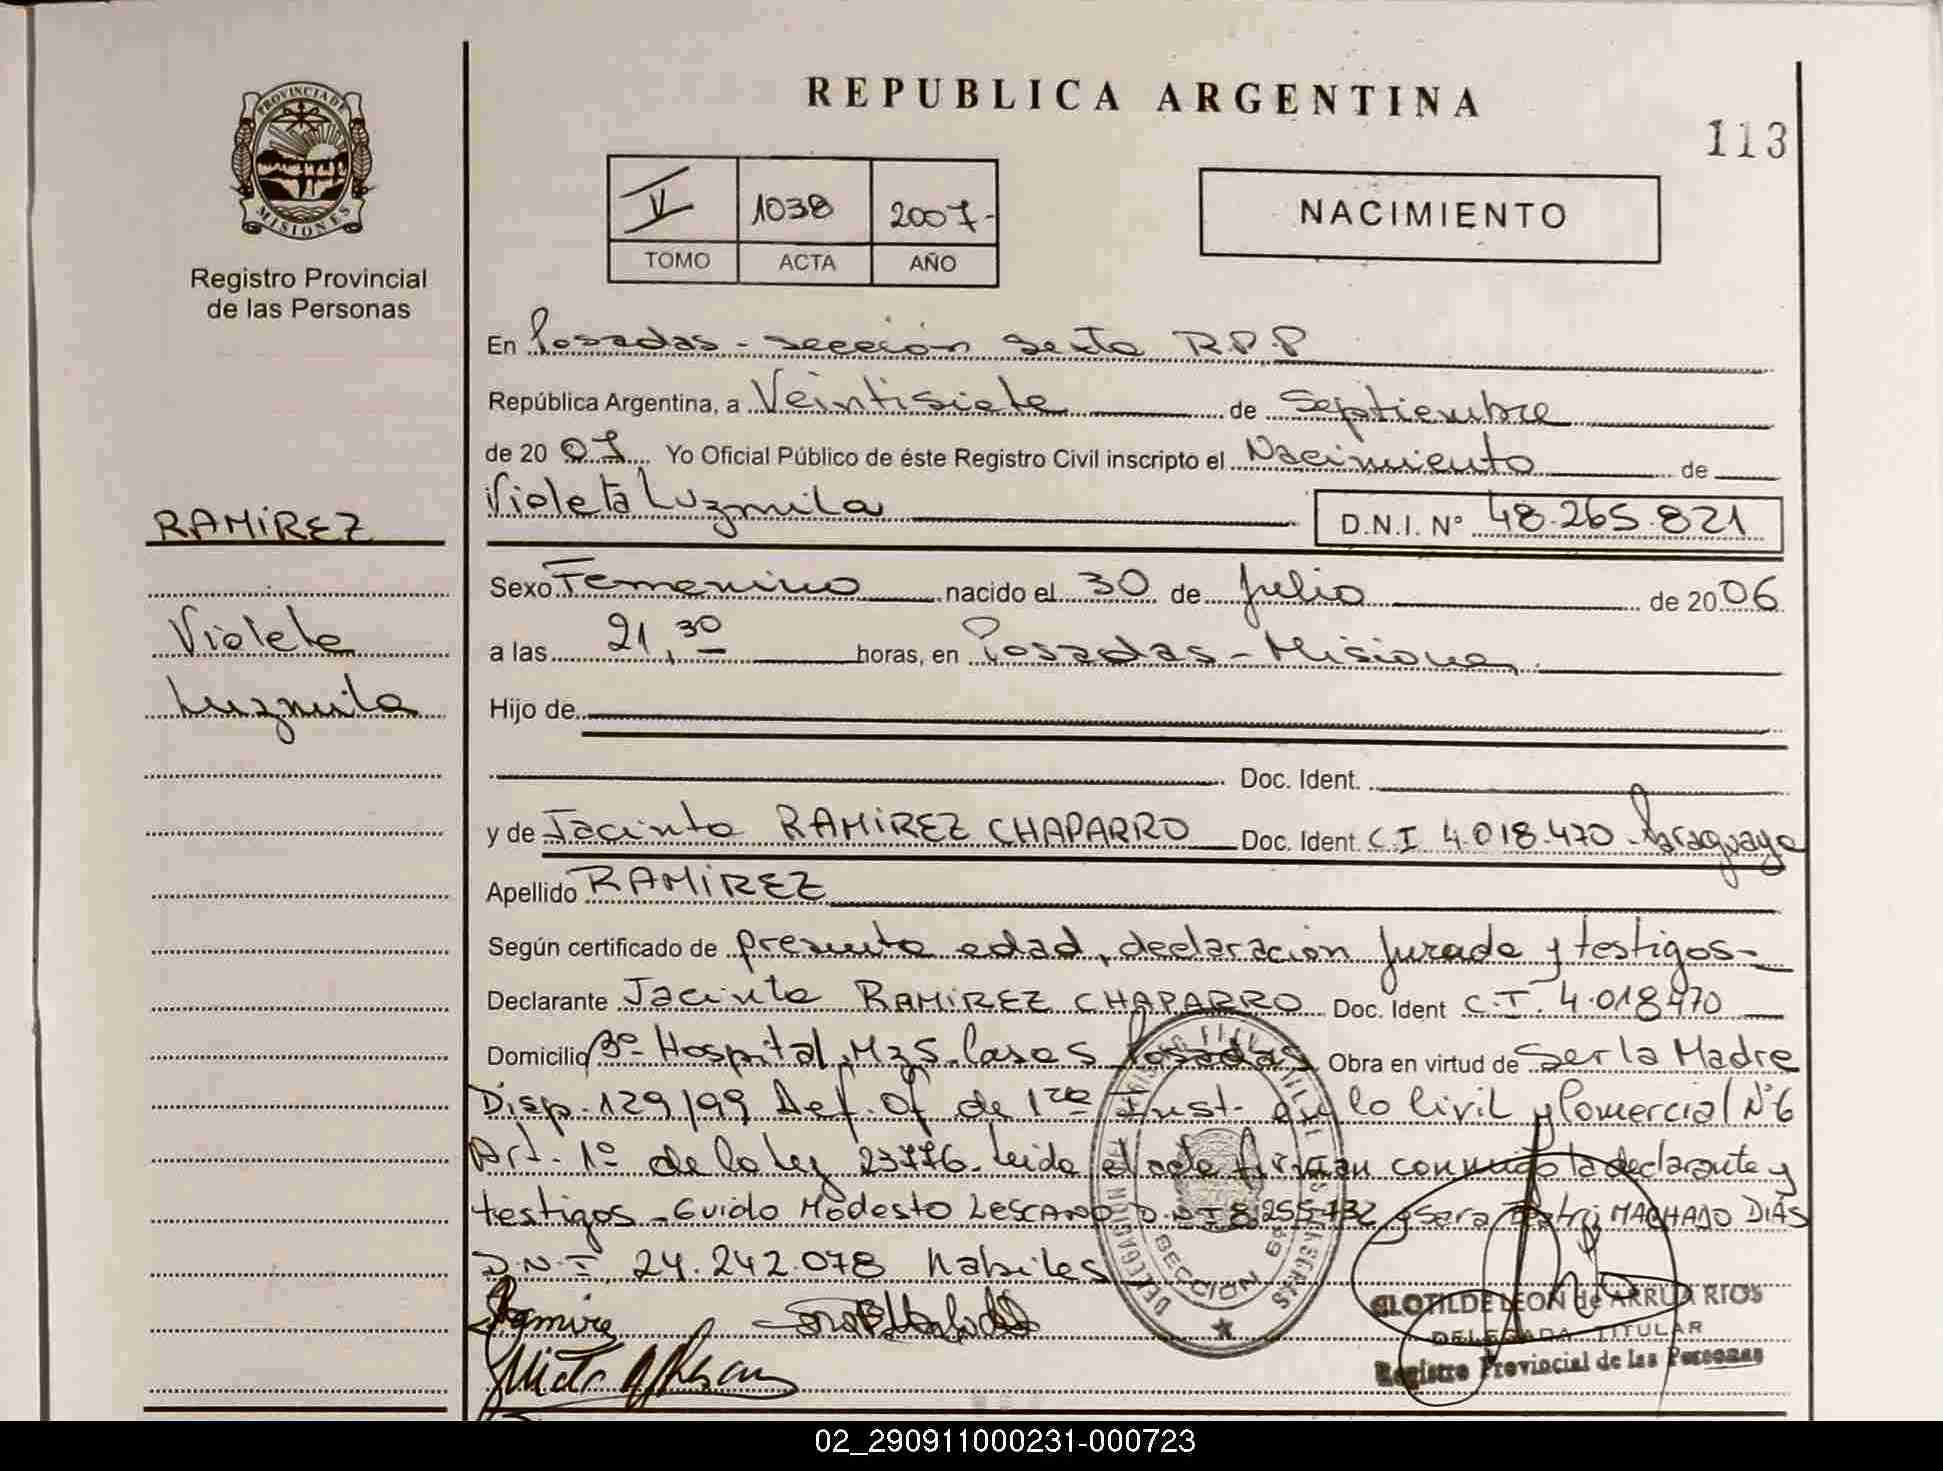 REPUBLICA ARGENTINA
113
PROVINCIA DE MISIONES
Registro Provincial
de las Personas
V 1038 2007-
TOMO ACTA AÑO
NACIMIENTO
En Posadas - sección Sexta R.P.P
República Argentina, a Veintisiete de Septiembre
de 20 07 Yo Oficial Público de éste Registro Civil inscripto el Nacimiento de
Violeta Luzmila D.N.I. N° 48.265.821
RAMIREZ
Violeta
Luzmila
Sexo Femenino nacido el 30 de Julio de 20 06
a las 21,30 horas, en Posadas - Misiones
Hijo de
Doc. Ident.
y de Jacinta RAMIREZ CHAPARRO Doc. Ident. C I 4.018.470 Paraguaya
Apellido RAMIREZ
Según certificado de presunta edad, declaración Jurada y testigos-
Declarante Jacinta RAMIREZ CHAPARRO Doc. Ident C.I. 4.018.470
Domicilio Bº Hospital, Mz 5. Casa 5 Posadas Obra en virtud de Ser la Madre
Disp. 129/99 Def. Of de 1ra Inst. en lo Civil y Comercial N°6
Art. 1º de la Ley 23776. Leida el acta firman conmigo la declarante y
testigos - Guido Modesto LESCANO D.N.I 8.255.732 y Sara MACHADO DIAS
D.N.I. 24.242.078 habiles
SECCION 6ª
CLOTILDE LEON de ARRUA RIOS
DELEGADA TITULAR
Registro Provincial de las Personas
02_290911000231-000723